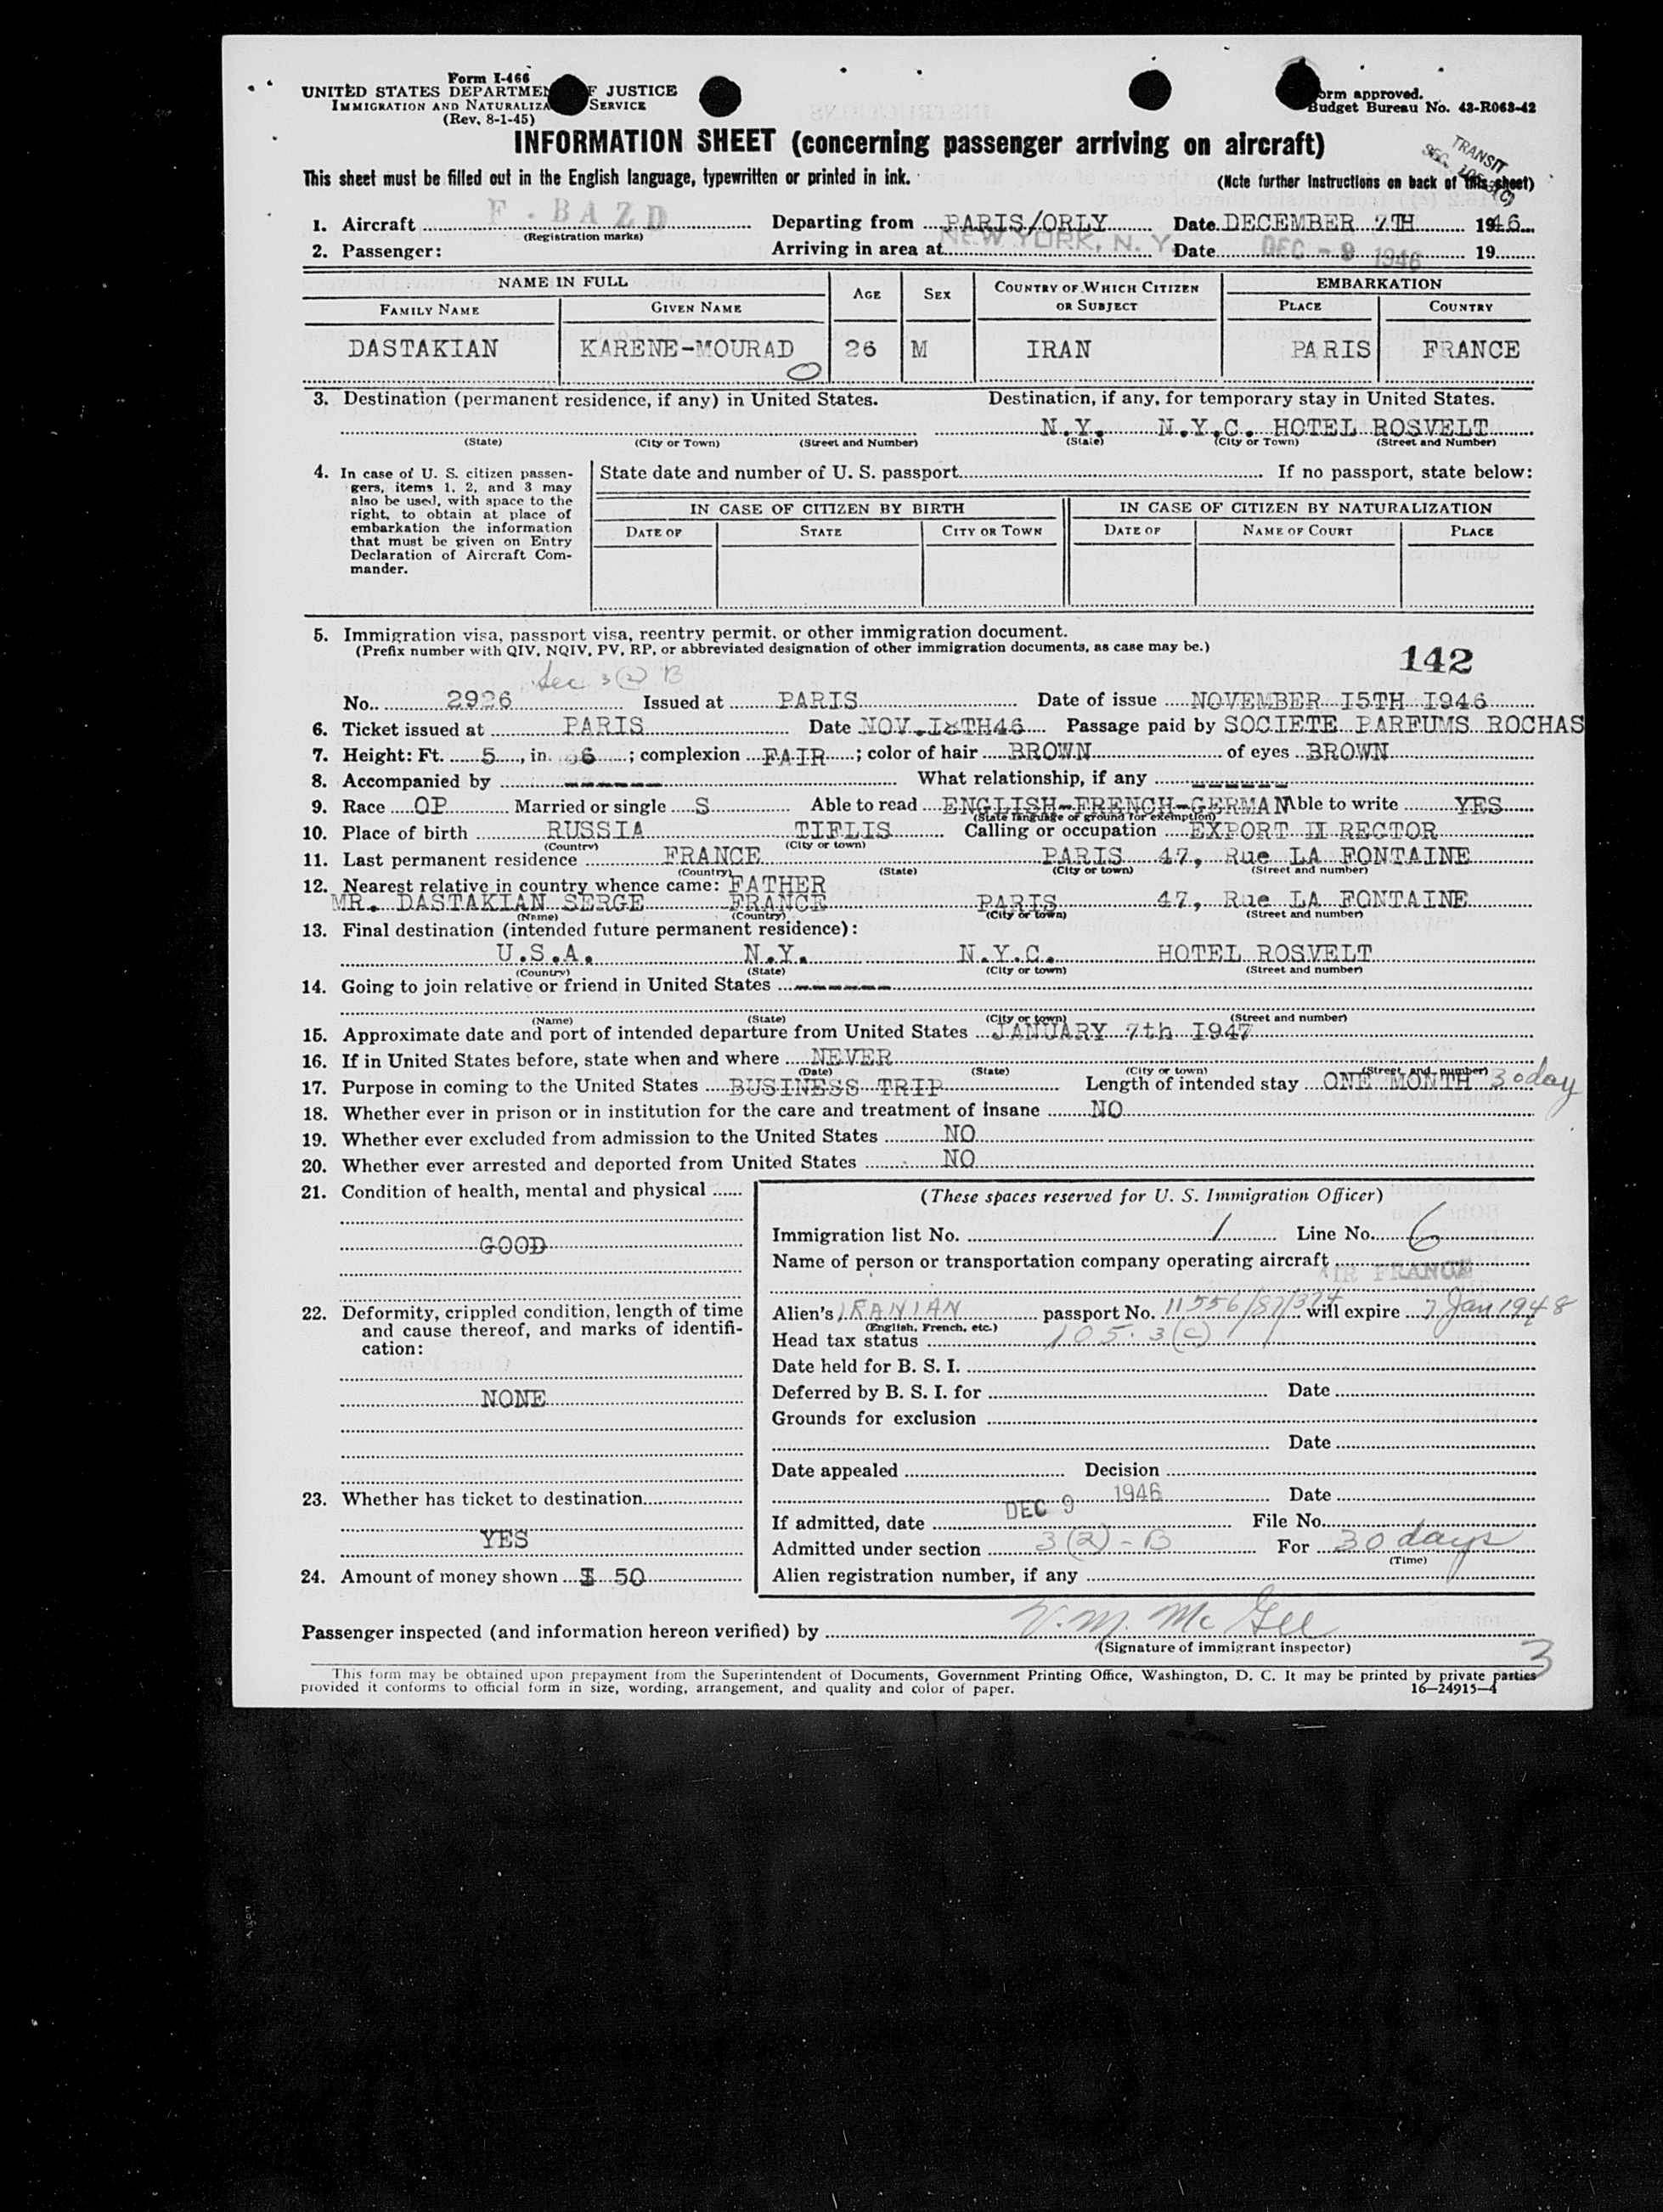 Form I-466
UNITED STATES DEPARTMENT OF JUSTICE
IMMIGRATION AND NATURALIZATION SERVICE
(Rev. 8-1-45)
Form approved.
Budget Bureau No. 43-R063-42
INFORMATION SHEET (concerning passenger arriving on aircraft)
TRANSIT
SEC.
This sheet must be filled out in the English language, typewritten or printed in ink.
(Note further instructions on back of this sheet)
1. Aircraft F. BAZD Departing from PARIS/ORLY Date DECEMBER 7TH 1946
(Registration marks)
2. Passenger: Arriving in area at NEW YORK, N. Y. Date DEC - 9 1946 19
NAME IN FULL AGE SEX COUNTRY OF WHICH CITIZEN OR SUBJECT EMBARKATION
FAMILY NAME GIVEN NAME PLACE COUNTRY
DASTAKIAN KARENE-MOURAD 26 M IRAN PARIS FRANCE
3. Destination (permanent residence, if any) in United States. Destination, if any, for temporary stay in United States.
N.Y. N.Y.C. HOTEL ROSVELT
(State) (City or Town) (Street and Number) (State) (City or Town) (Street and Number)
4. In case of U. S. citizen passengers, items 1, 2, and 3 may also be used, with space to the right, to obtain at place of embarkation the information that must be given on Entry Declaration of Aircraft Commander.
State date and number of U. S. passport If no passport, state below:
IN CASE OF CITIZEN BY BIRTH IN CASE OF CITIZEN BY NATURALIZATION
DATE OF STATE CITY OR TOWN DATE OF NAME OF COURT PLACE
5. Immigration visa, passport visa, reentry permit, or other immigration document.
(Prefix number with QIV, NQIV, PV, RP, or abbreviated designation of other immigration documents, as case may be.)
142
Sec 3(2) B
No. 2926 Issued at PARIS Date of issue NOVEMBER I5TH I946
6. Ticket issued at PARIS Date NOV.I8TH46 Passage paid by SOCIETE PARFUMS ROCHAS
7. Height: Ft. 5, in. 6; complexion FAIR; color of hair BROWN of eyes BROWN
8. Accompanied by ------ What relationship, if any ------
9. Race OP Married or single S Able to read ENGLISH-FRENCH-GERMAN Able to write YES
(State language or ground for exemption)
10. Place of birth RUSSIA TIFLIS Calling or occupation EXPORT DIRECTOR
(Country) (City or town)
11. Last permanent residence FRANCE PARIS 47, Rue LA FONTAINE
(Country) (State) (City or town) (Street and number)
12. Nearest relative in country whence came: FATHER
MR. DASTAKIAN SERGE FRANCE PARIS 47, Rue LA FONTAINE
(Name) (Country) (City or town) (Street and number)
13. Final destination (intended future permanent residence):
U.S.A. N.Y. N.Y.C. HOTEL ROSVELT
(Country) (State) (City or town) (Street and number)
14. Going to join relative or friend in United States ------
(Name) (State) (City or town) (Street and number)
15. Approximate date and port of intended departure from United States JANUARY 7th I947
16. If in United States before, state when and where NEVER
(Date) (State) (City or town) (Street and number)
17. Purpose in coming to the United States BUSINESS TRIP Length of intended stay ONE MONTH 30 day
18. Whether ever in prison or in institution for the care and treatment of insane NO
19. Whether ever excluded from admission to the United States NO
20. Whether ever arrested and deported from United States NO
21. Condition of health, mental and physical
GOOD
22. Deformity, crippled condition, length of time and cause thereof, and marks of identification:
NONE
23. Whether has ticket to destination
YES
24. Amount of money shown $ 50
(These spaces reserved for U. S. Immigration Officer)
Immigration list No. 1 Line No. 6
Name of person or transportation company operating aircraft
AIR FRANCE
Alien's IRANIAN passport No. 11556/87/374 will expire 7 Jan 1948
(English, French, etc.)
Head tax status 105.3(c)
Date held for B. S. I.
Deferred by B. S. I. for Date
Grounds for exclusion
Date
Date appealed Decision
Date
If admitted, date DEC 9 1946 File No.
Admitted under section 3(2)-B For 30 days
(Time)
Alien registration number, if any
Passenger inspected (and information hereon verified) by V. M. McGee
(Signature of immigrant inspector)
3
This form may be obtained upon prepayment from the Superintendent of Documents, Government Printing Office, Washington, D. C. It may be printed by private parties
provided it conforms to official form in size, wording, arrangement, and quality and color of paper.
16—24915-4